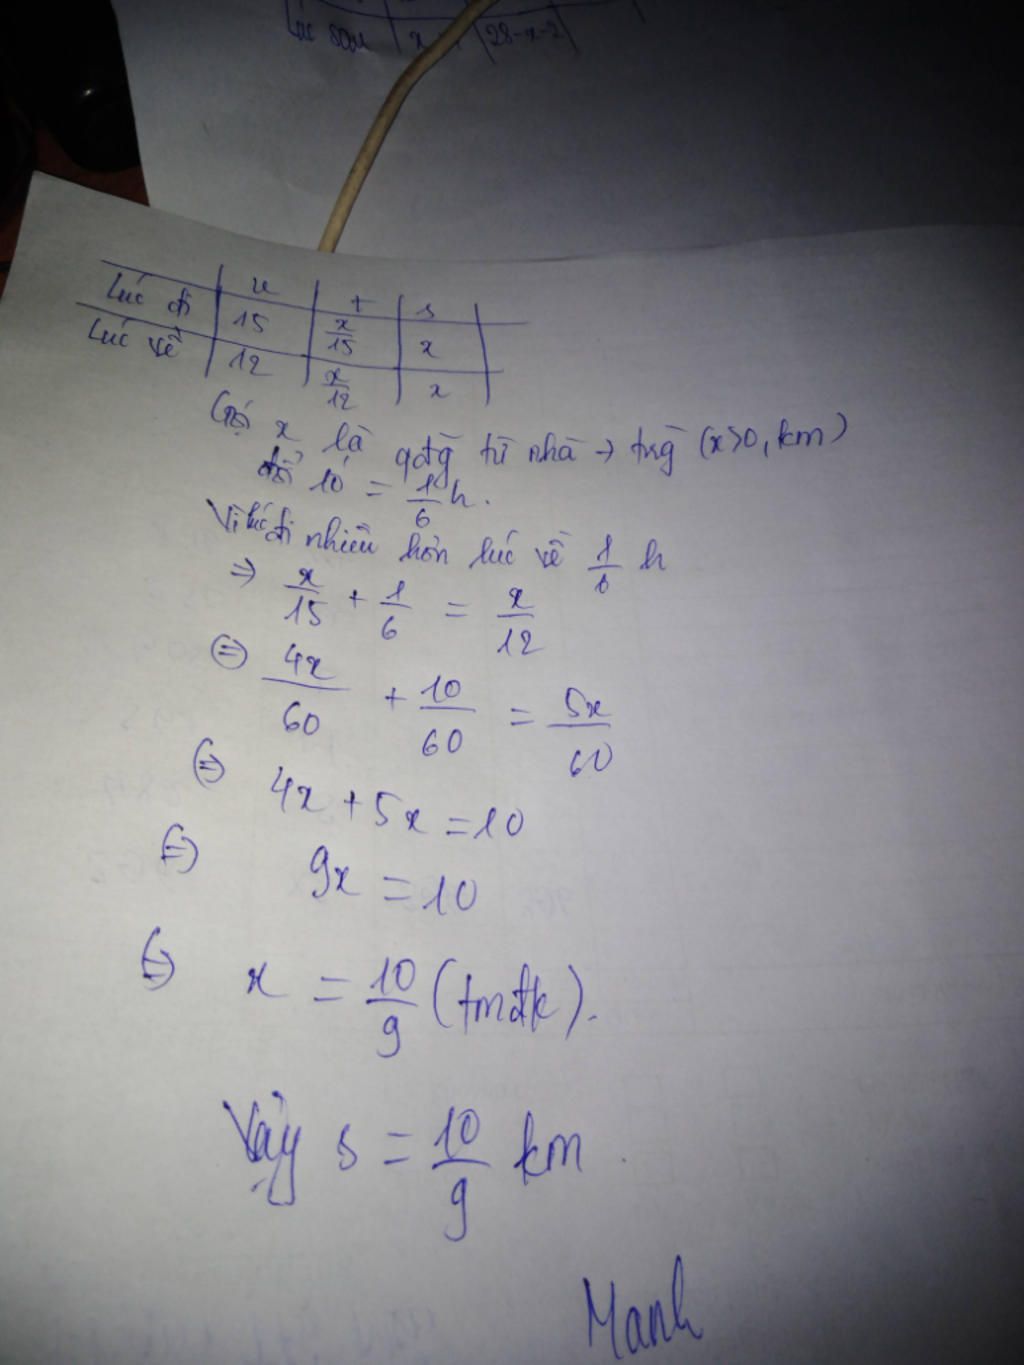 Lúc sau | x | 28-x-2
v | t | s
Lúc đi | 15 | x/15 | x
Lúc về | 12 | x/12 | x
Gọi x là qđg từ nhà → trg (x>0, km)
đổi 10' = 1/6 h.
Vì lúc đi nhiều hơn lúc về 1/6 h
⇒ x/15 + 1/6 = x/12
⇔ 4x/60 + 10/60 = 5x/60
⇔ 4x + 5x = 10
⇔ 9x = 10
⇔ x = 10/9 (tmđk).
Vậy s = 10/9 km
Manh